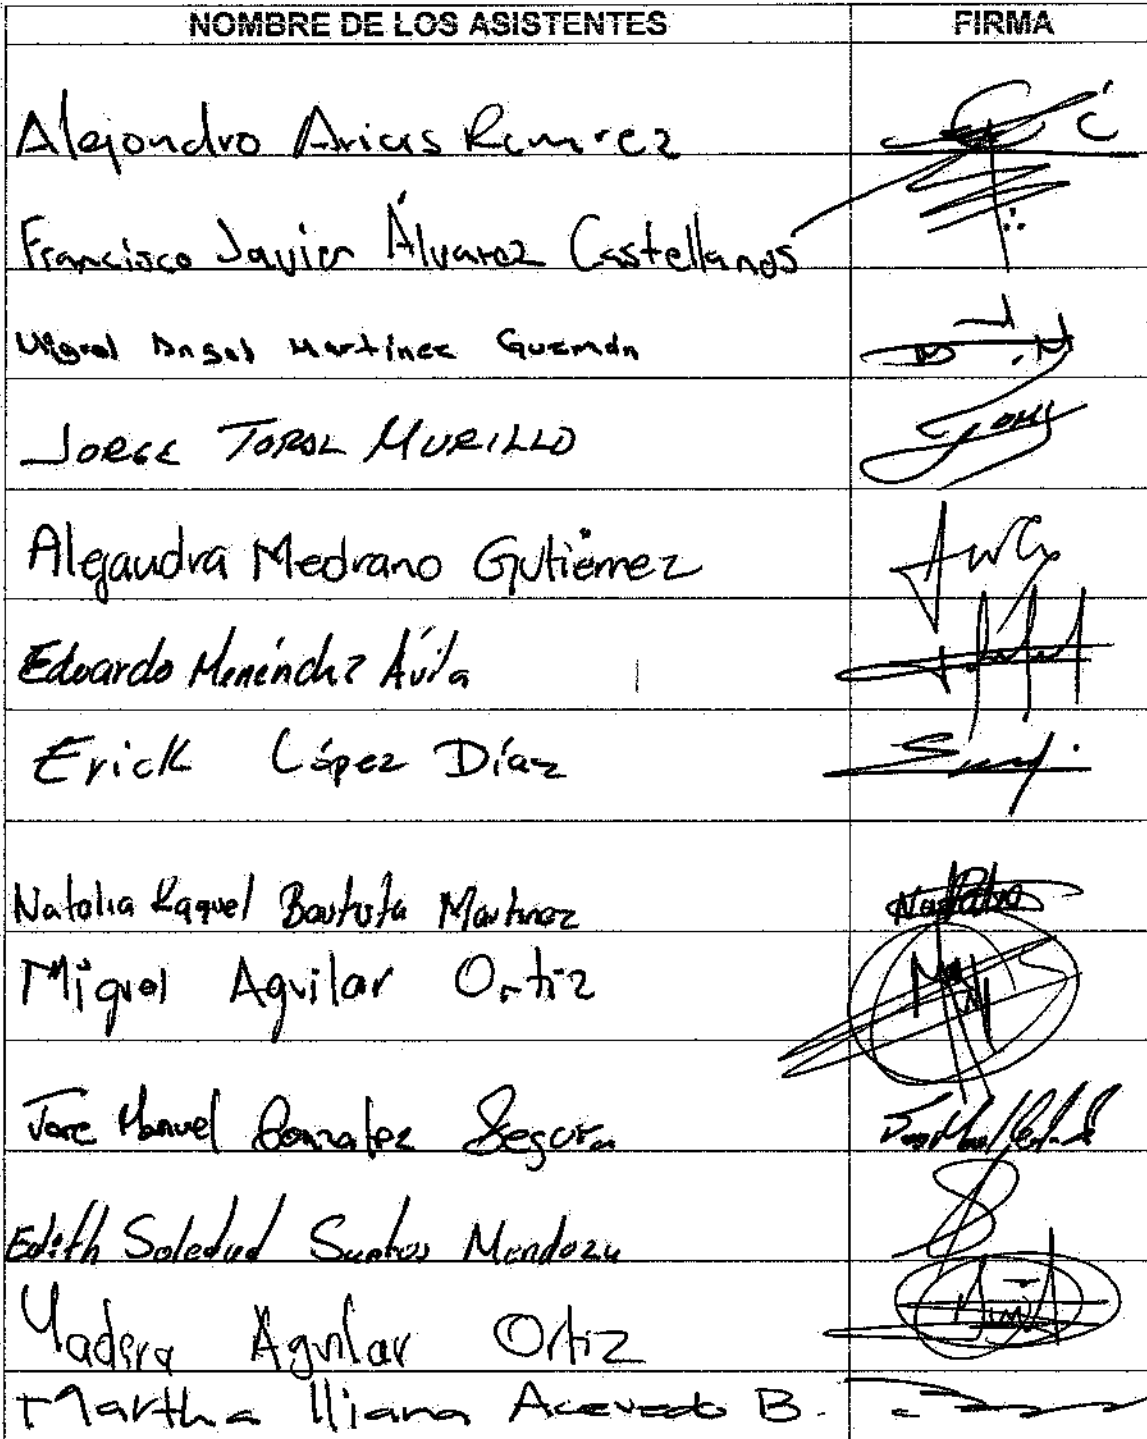 NOMBRE DE LOS ASISTENTES FIRMA
Alejandro Arias Ramirez
Francisco Javier Álvarez Castellanos
Miguel Angel Martínez Guzmán
JORGE TORAL MURILLO
Alejandra Medrano Gutiérrez
Eduardo Menéndez Ávila
Erick López Díaz
Natalia Raquel Bautista Martinez
Miguel Aguilar Ortiz
Jose Manuel Gonzalez Segura
Edith Soledad Santos Mendoza
Yadira Aguilar Ortiz
Martha Iliana Acevedo B.